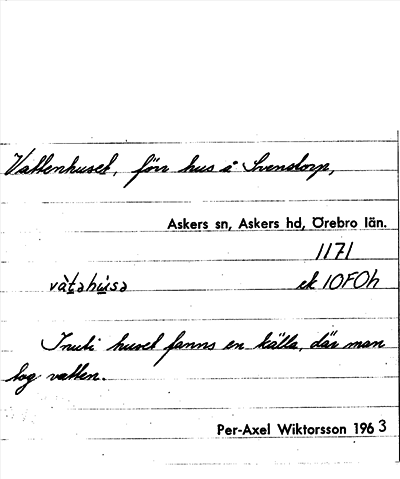 Vattenhuset, förr hus å Svenstorp,
Askers sn, Askers hd, Örebro län.
1171
vàt̲əhu̲sə ek 10F0h
Inuti huset fanns en källa, där man
tog vatten.
Per-Axel Wiktorsson 1963